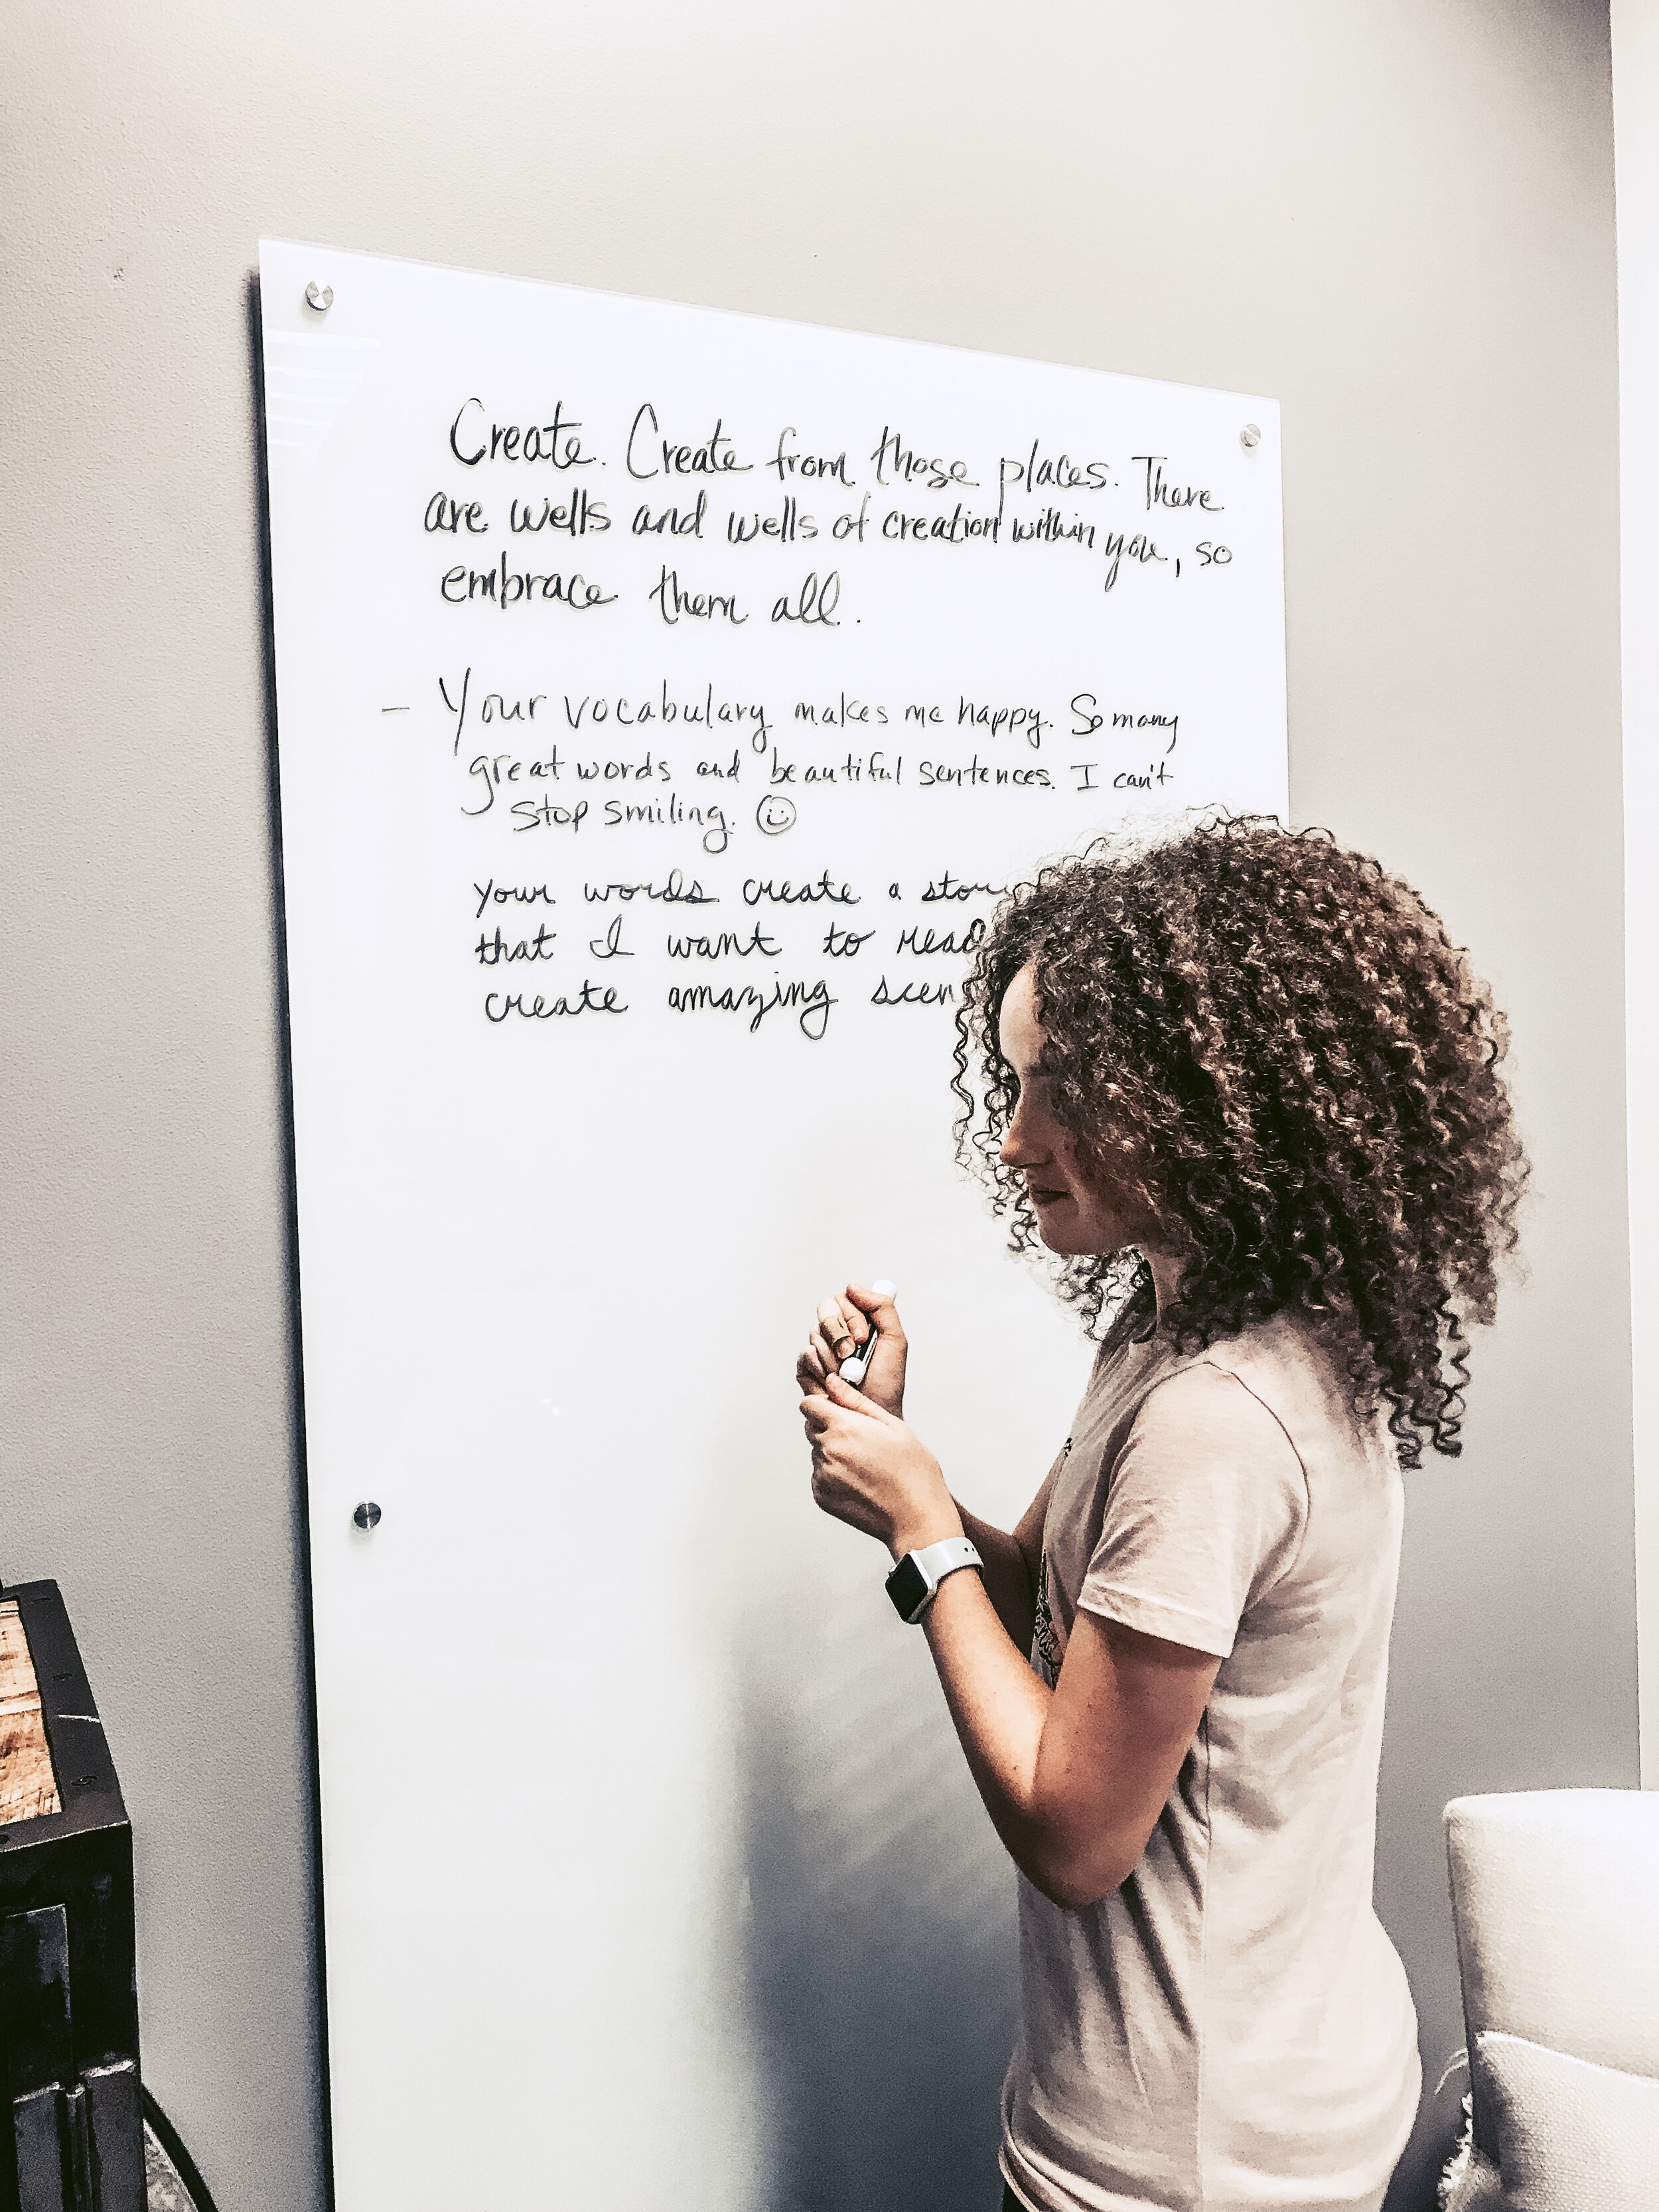 Create. Create from those places. There
are wells and wells of creation within you, so
embrace them all.
- Your vocabulary makes me happy. So many
great words and beautiful sentences. I can't
stop smiling. ☺
Your words create a
that I want to read
create amazing